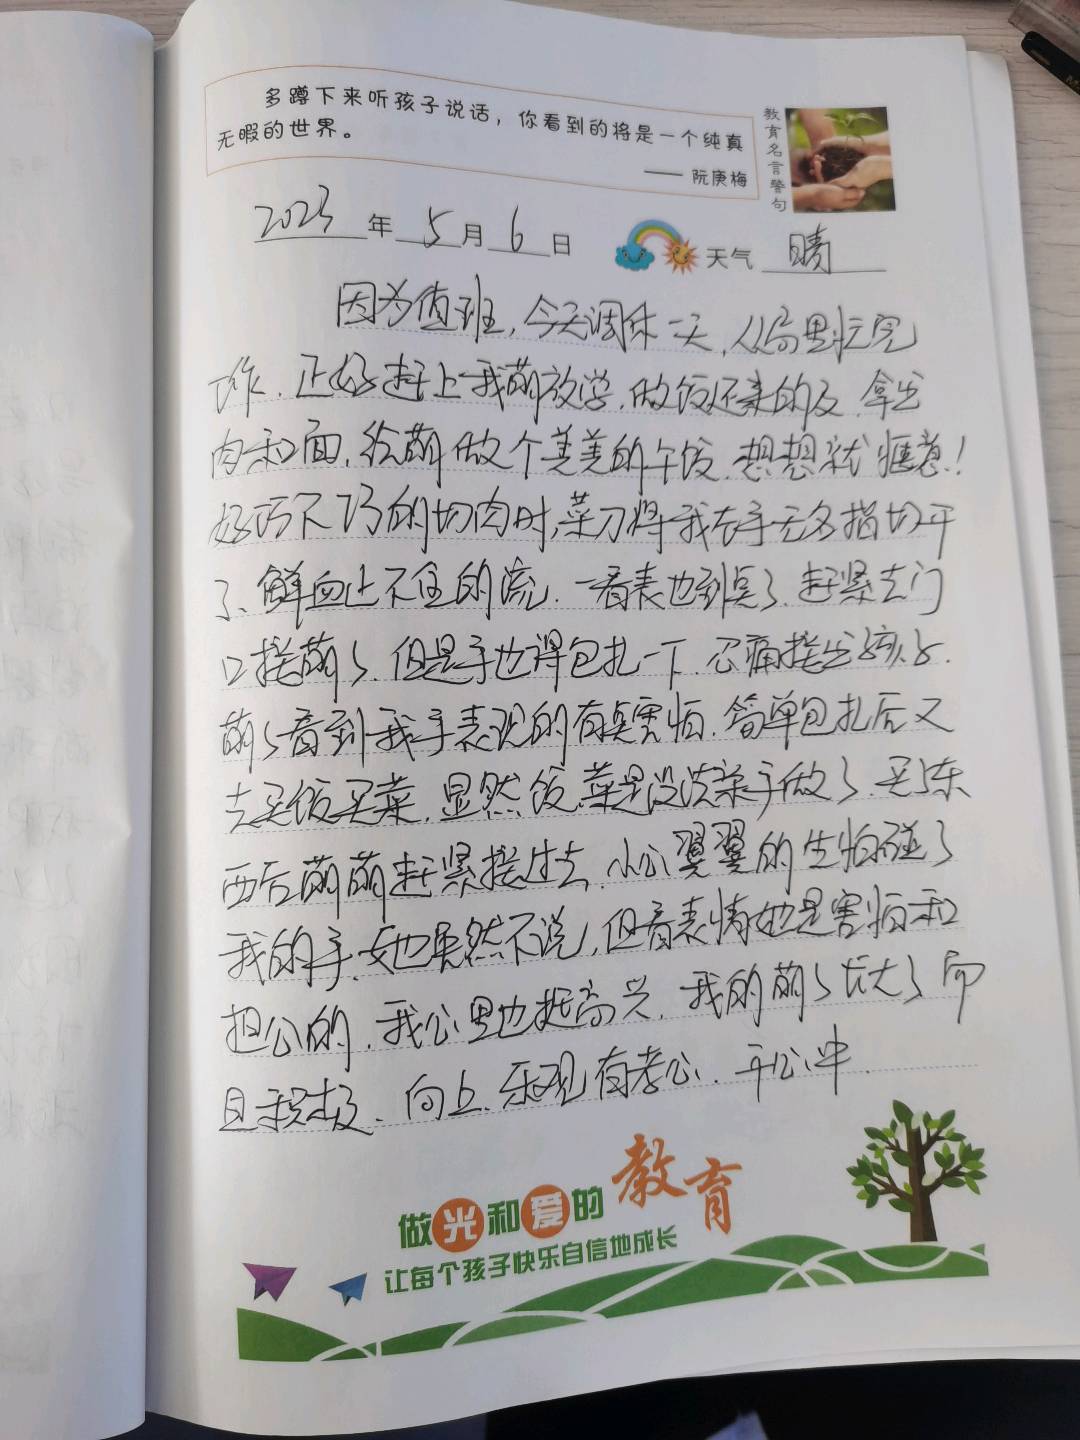 多蹲下来听孩子说话，你看到的将是一个纯真
无暇的世界。
—— 阮庚梅
教育名言警句
2023年5月6日 天气 晴
因为值班，今天调休一天，从局里忙完
工作，正好赶上我萌放学，做饭还来的及，拿出
肉和面，给萌做个美美的午饭，想想就惬意！
好巧不巧的切肉时，菜刀将我左手无名指切开
了、鲜血止不住的流．一看表也到点了、赶紧去门
口接萌了．但是手也得包扎一下、忍痛接出孩子．
萌萌看到我手表现的有点害怕．简单包扎后又
去买饭买菜．显然饭菜是没法亲手做了．买了东
西后萌萌赶紧接过去．小心翼翼的生怕碰了
我的手、她虽然不说，但看表情她是害怕和
担心的．我心里也挺高兴．我的萌萌长大了而
且积极、向上、乐观有孝心．开心中．
做光和爱的教育
让每个孩子快乐自信地成长